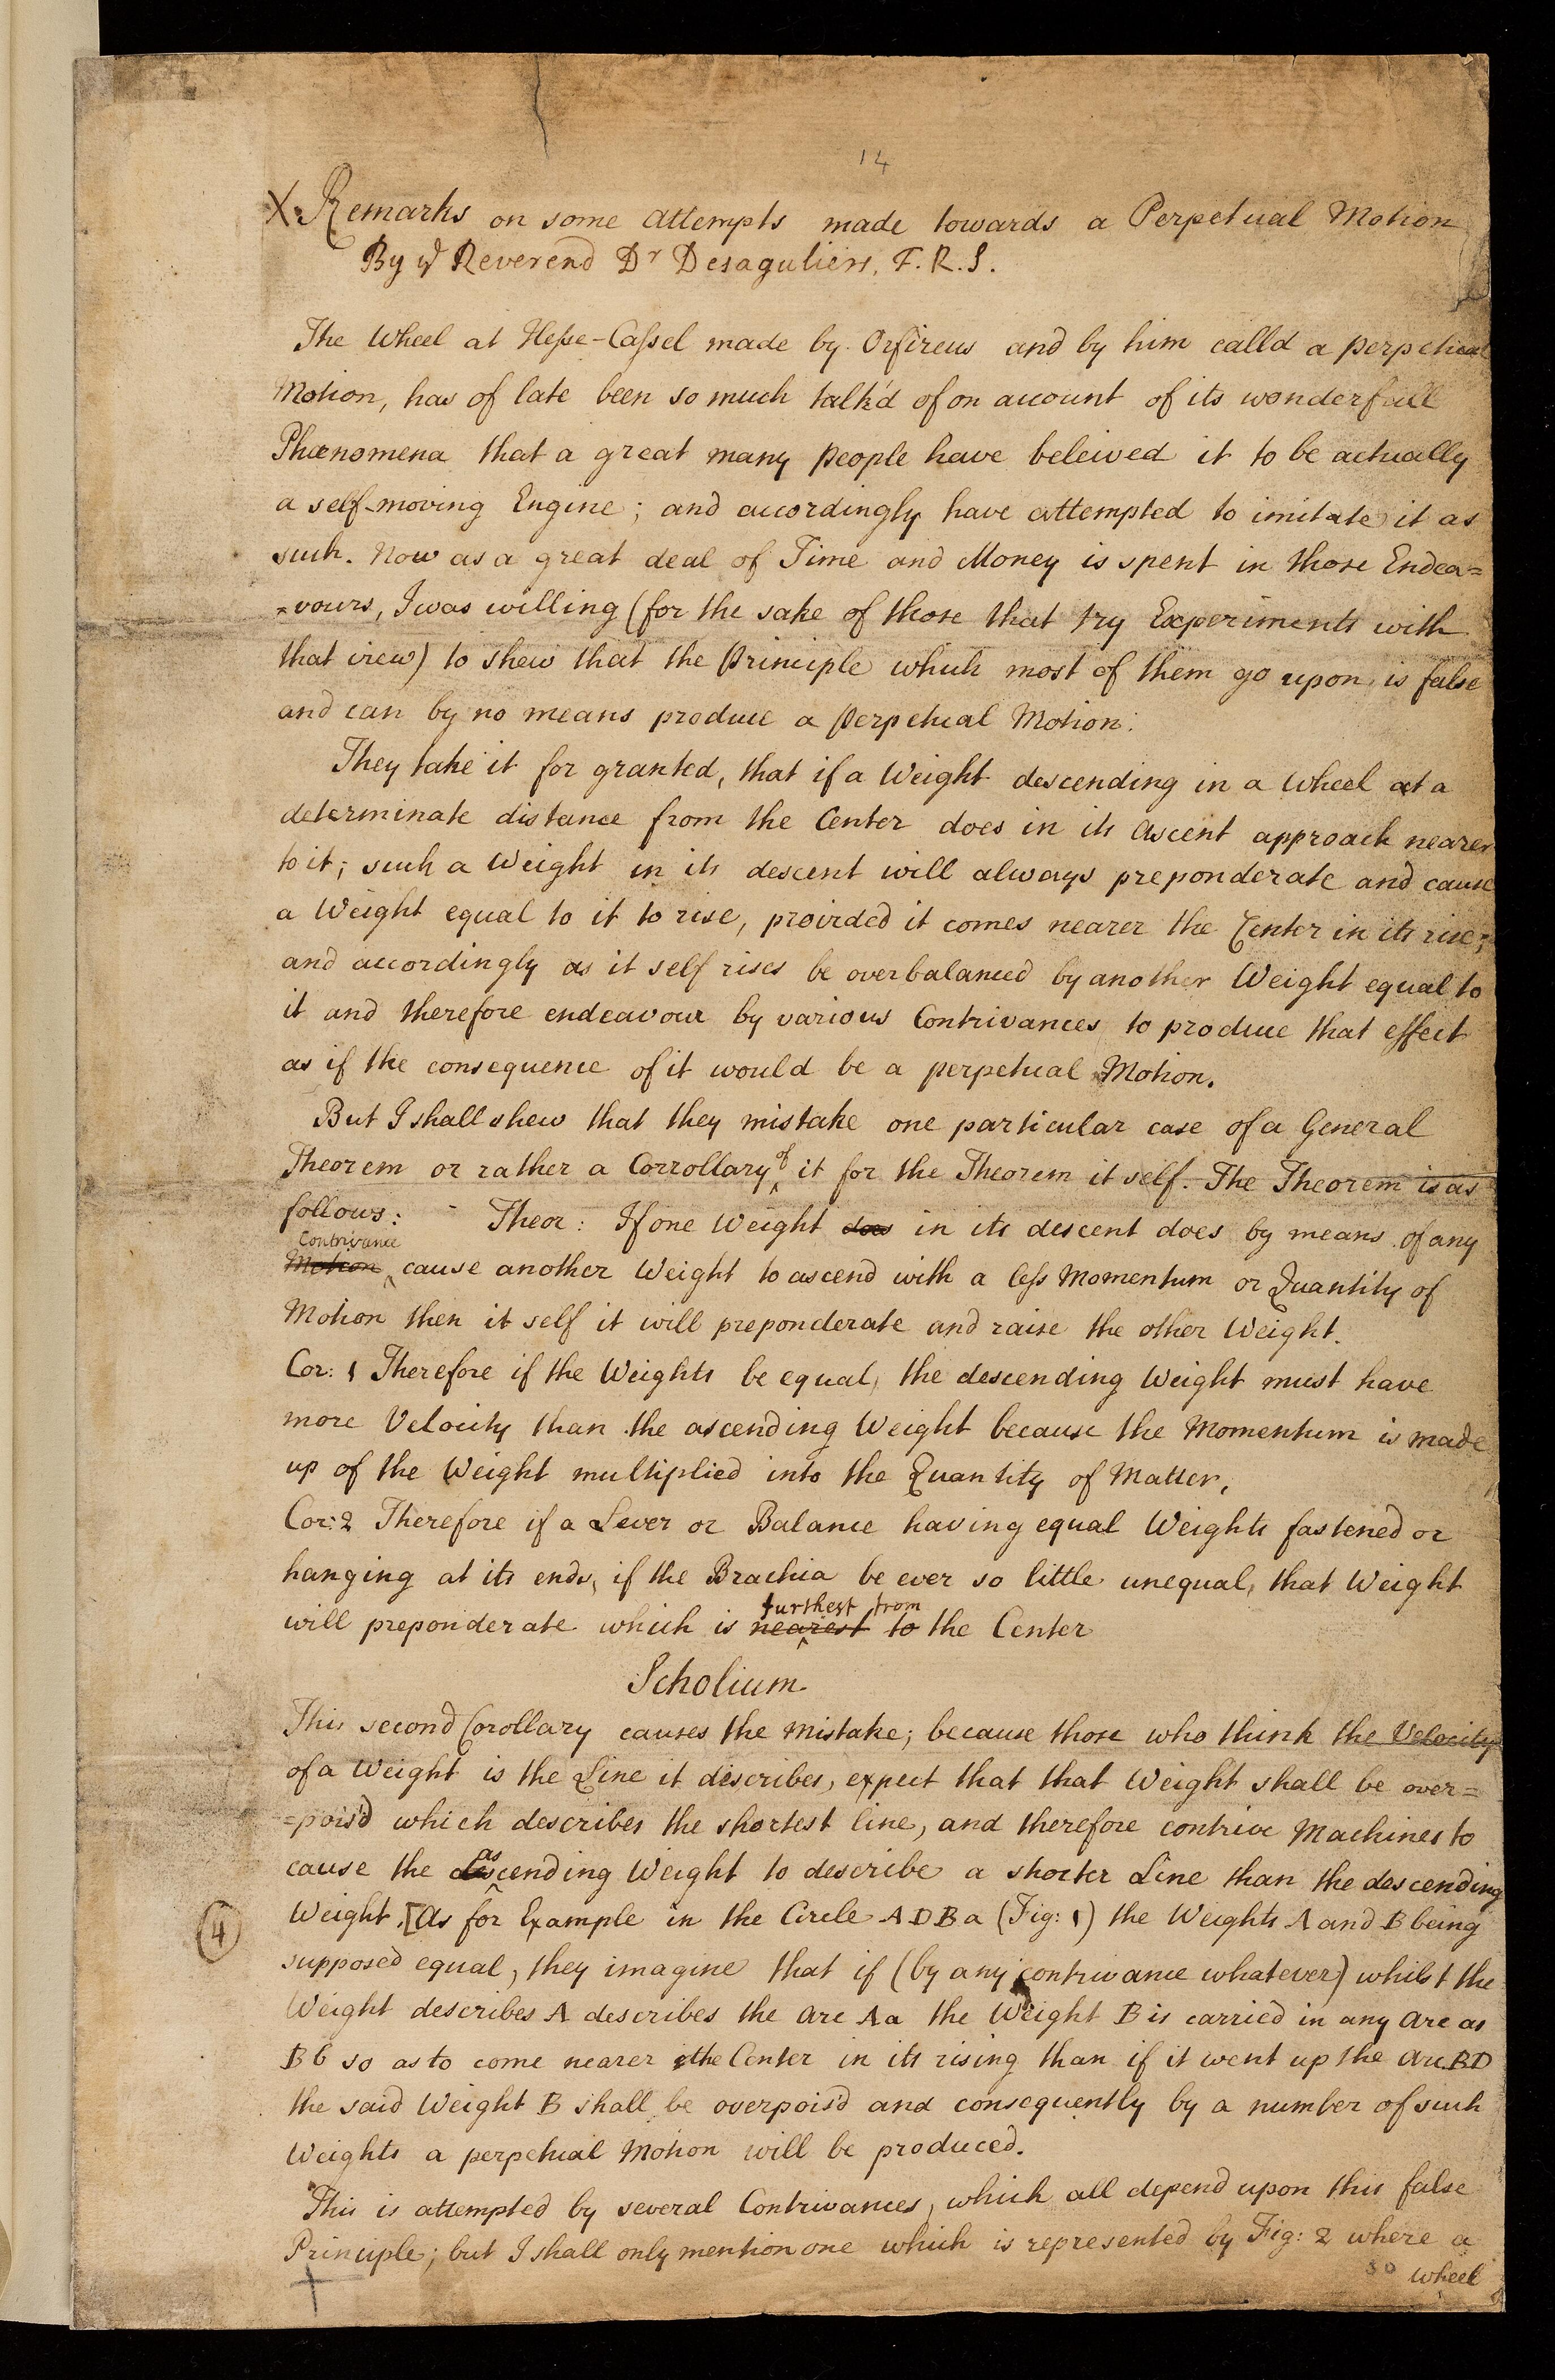 14
X. Remarks on some attempts made towards a Perpetual Motion
By ye Reverend Dr Desaguliers, F.R.S.
The Wheel at Hesse-Cassel made by Orfireus and by him calld a perpetual
Motion, has of late been so much talk'd of on account of its wonderfull
Phænomena that a great many people have beleived it to be actually
a self-moving Engine; and accordingly have attempted to imitate it as
such. Now as a great deal of Time and Money is spent in those Endea=
=vours, I was willing (for the sake of those that try Experiments with
that view) to shew that the Principle which most of them go upon, is false
and can by no means produce a perpetual Motion.
They take it for granted, that if a Weight descending in a Wheel at a
determinate distance from the Center does in its ascent approach nearer
to it; such a Weight in its descent will always preponderate and cause
a Weight equal to it to rise, proirded it comes nearer the Center in its rise;
and accordingly as it self rises be overbalanced by another Weight equal to
it and therefore endeavour by various Contrivances to produce that effect
as if the consequence of it would be a perpetual Motion.
But I shall shew that they mistake one particular case of a General
Theorem or rather a Corrollary of it for the Theorem it self. The Theorem is as
follows: Theor: If one Weight does in its descent does by means of any
Motion Contrivance cause another Weight to ascend with a less Momentum or Quantity of
Motion then it self it will preponderate and raise the other Weight.
Cor: 1 Therefore if the Weights be equal, the descending Weight must have
more Velocity than the ascending Weight because the Momentum is made
up of the Weight multiplied into the Quantity of Matter.
Cor: 2 Therefore if a Lever or Balance having equal Weights fastened or
hanging at its ends, if the Brachia be ever so little unequal, that Weight
will preponderate which is nearest to furthest from the Center
Scholium.
This second Corollary causes the mistake; because those who think the Velocity
of a Weight is the Line it describes, expect that that Weight shall be over=
=pois'd which describes the shortest line, and therefore contrive Machines to
cause the ascending Weight to describe a shorter Line than the descending
4
Weight. [As for Example in the Circle ADBa (Fig: 1) the Weights A and B being
supposed equal, they imagine that if (by any contrivance whatever) whilst the
Weight describes A describes the arc Aa the Weight B is carried in any arc as
Bb so as to come nearer the Center in its rising than if it went up the Arc BD
the said Weight B shall be overpois'd and consequently by a number of such
Weights a perpetual Motion will be produced.
This is attempted by several Contrivances, which all depend upon this false
Principle; but I shall only mention one which is represented by Fig: 2 where a
wheel